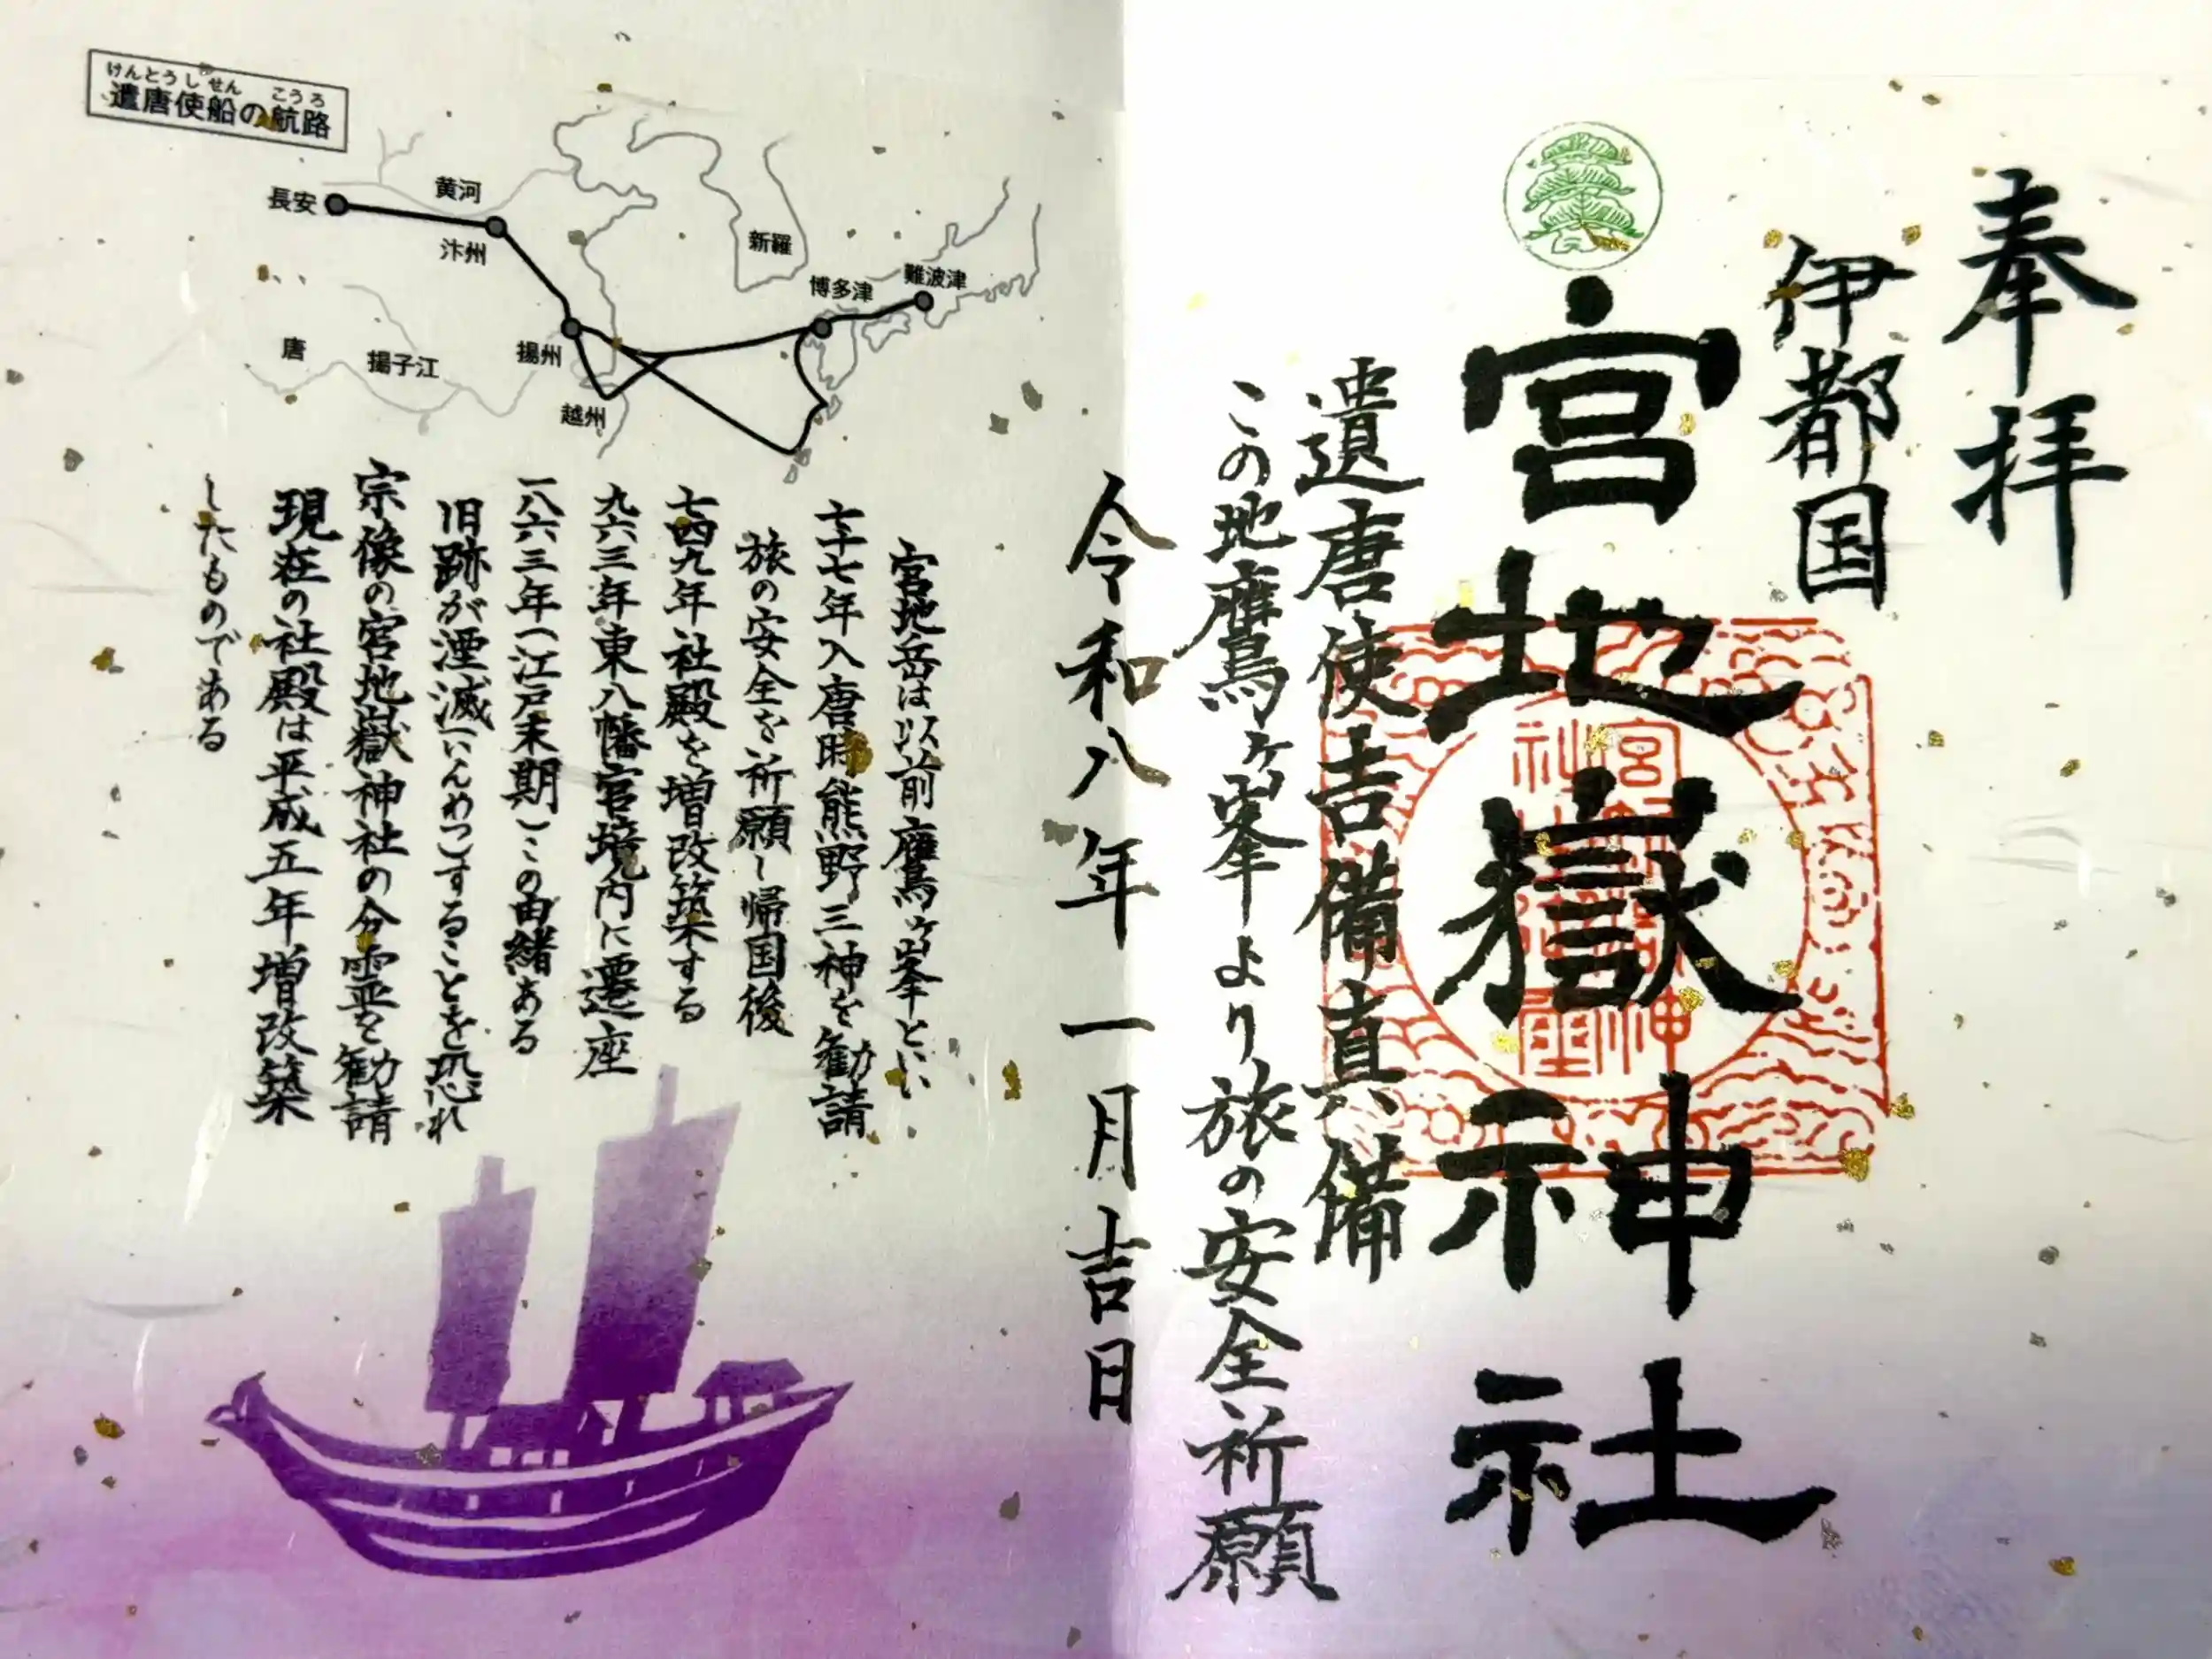 奉拝
伊都国
宮地嶽神社
遣唐使吉備真備
この地鷹ヶ峯より旅の安全祈願
令和八年一月吉日
宮地岳は以前鷹ヶ峯といい
七一七年入唐時熊野三神を勧請
旅の安全を祈願し帰国後
七四九年社殿を増改築する
九六三年東八幡宮境内に遷座
一八六三年(江戸末期)この由緒ある
旧跡が湮滅(いんめつ)することを恐れ
宗像の宮地嶽神社の分霊を勧請
現在の社殿は平成五年増改築
したものである
けんとうしせん こうろ
遣唐使船の航路
長安
黄河
汴州
新羅
博多津
難波津
唐
揚子江
揚州
越州